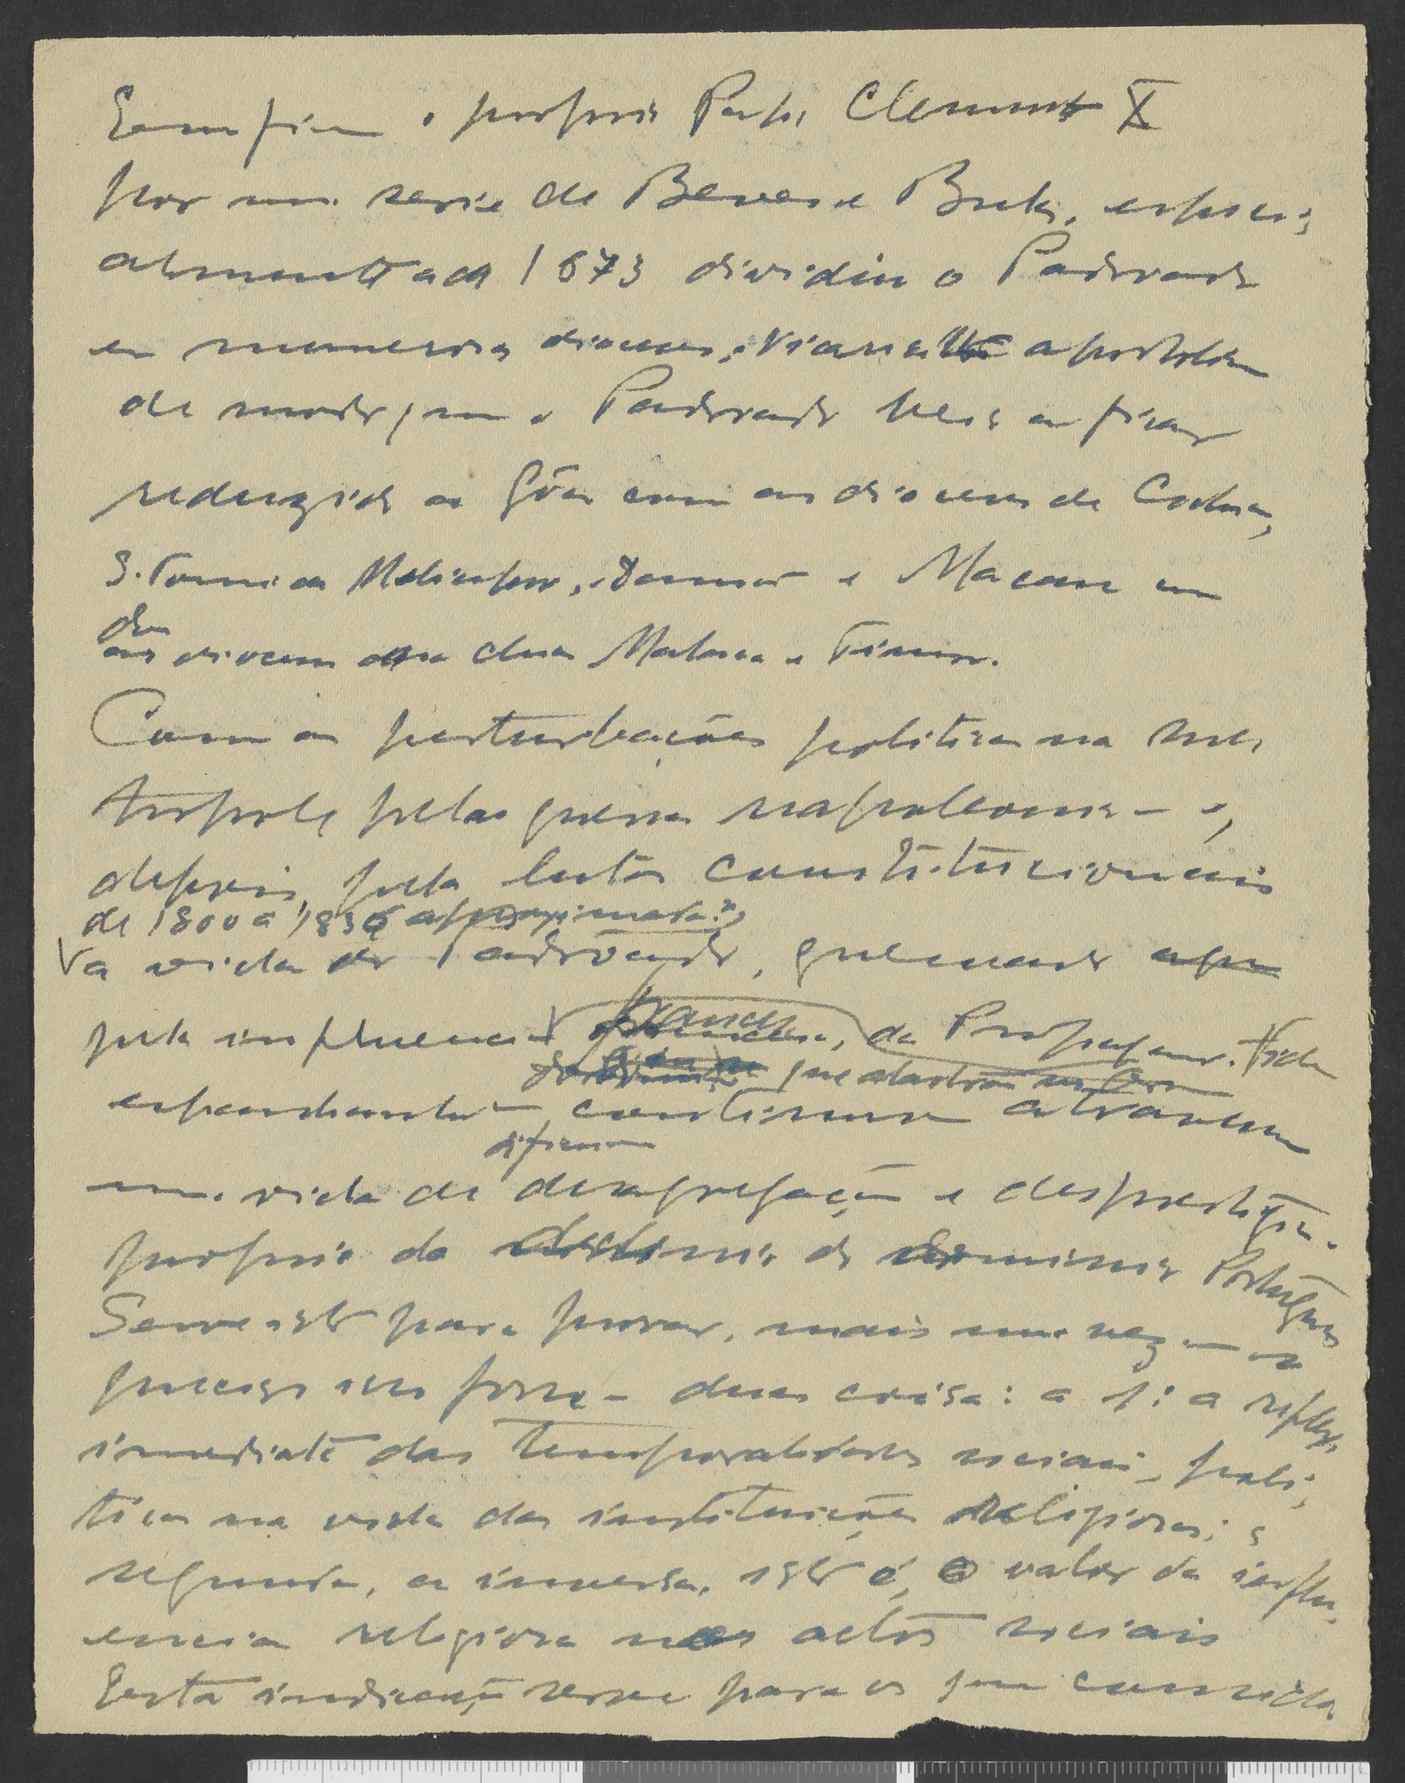 E em fim o proprio Papa Clemente X
por uma serie de Breves e Bulas, especi-
almente a de 1673 dividiu o Padroado
em numerosas dioceses, e vicariatos apostolicos
de modo que o Padroado veio a ficar
reduzido a Gôa com as dioceses de Cochim,
S. Tomé de Meliapor, Damão e Macau com
as dioceses das duas Malaca e Timor.
Com as perturbações politicas na me-
tropole pelas guerras napoleonicas e,
depois, pelas lutas constitucionais
de 1800 a 1836 aproximada.te,
a vida do Padroado, quebrado
pela influencia francesa, da Propaganda Fide
que
espandindo continua atravessou
dificil
uma vida de desagregação e desprestigio
proprio do do dominio Português
Serve isto para provar, mais uma vez
duas coisas: a 1.ª a reflexo
imediato das temporalidades sociais, poli-
ticas na vida das instituições religiosas; a
segunda, a inversa, isto é, o valor da influ-
encia religiosa nos actos sociais
Esta indicação serve para os que conside-